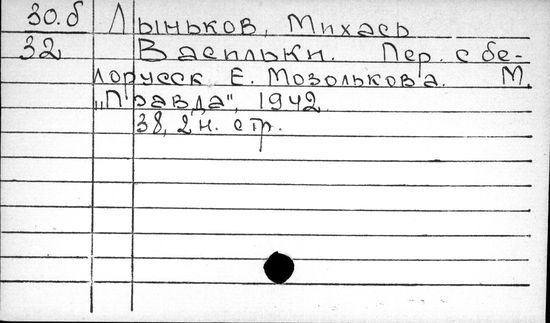 30.б Лыньков, Михась
32 Васильки. Пер. с бе-
лорусск. Е. Мозолькова. М.
„Правда", 1942.
38, 2 н. стр.